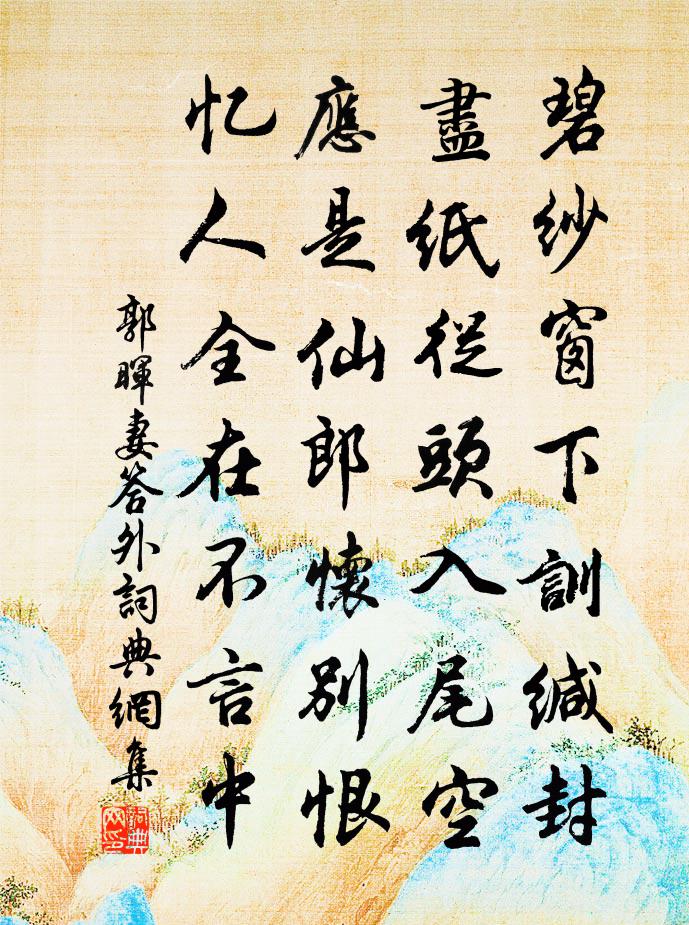 碧紗窗下訓緘封
盡紙從頭入尾空
應是仙郎懷別恨
忆人全在不言中
郭暉妻答外詞典網集
詞典網印